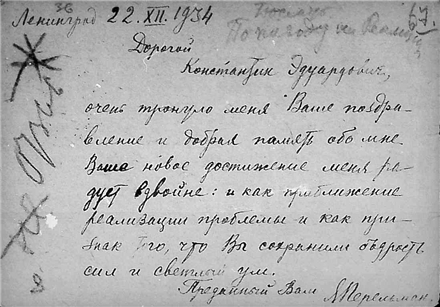 36
Ленинград 22.XII.1934
Дорогой
Константин Эдуардович,
очень тронуло меня Ваше поздра-
вление и добрая память обо мне.
Ваше новое достижение меня ра-
дует вдвойне: и как приближение
реализации проблемы и как при-
знак того, что Вы сохранили бодрость
сил и светлый ум.
Преданный Вам Я. Перельман